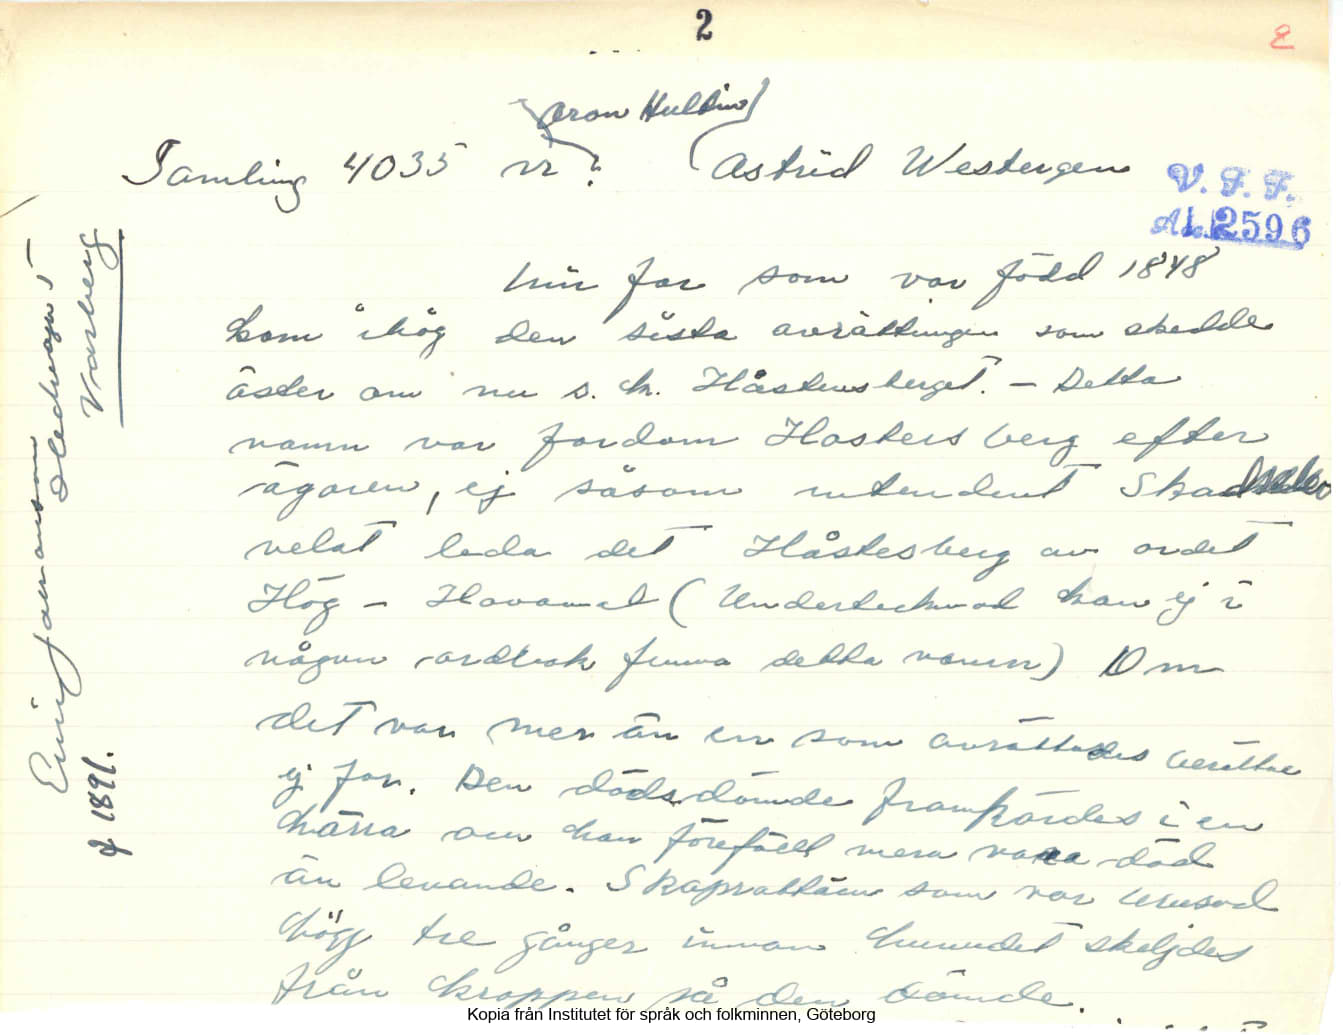 2
2
Aron Hultin
Samling 4035 nr ? (Astrid Westergren
V. F. F.
Ac. 2596
Min far som var född 1848
kom ihåg den sista avrättningen som skedde
öster om nu s. k. Håstensberget. – Detta
namn var fordom Hosters berg efter
ägaren, ej såsom intendent Skad
velat leda det Håstesberg av ordet
Hög – Havamal (Undertecknad kan ej i
någon ordbok finna detta namn) Om
det var mer än en som avrättades berättar
ej far. Den dödsdömde framkördes i en
kärra och han föreföll mera vara död
än levande. Skaprättaren som var berusad
högg tre gånger innan huvudet skeljdes
från kroppen på den dömde.
Varberg
f 1891.
Kopia från Institutet för språk och folkminnen, Göteborg